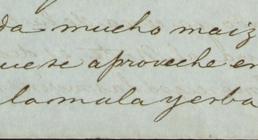 da mucho maiz
uese aproveche en
la mala yerba